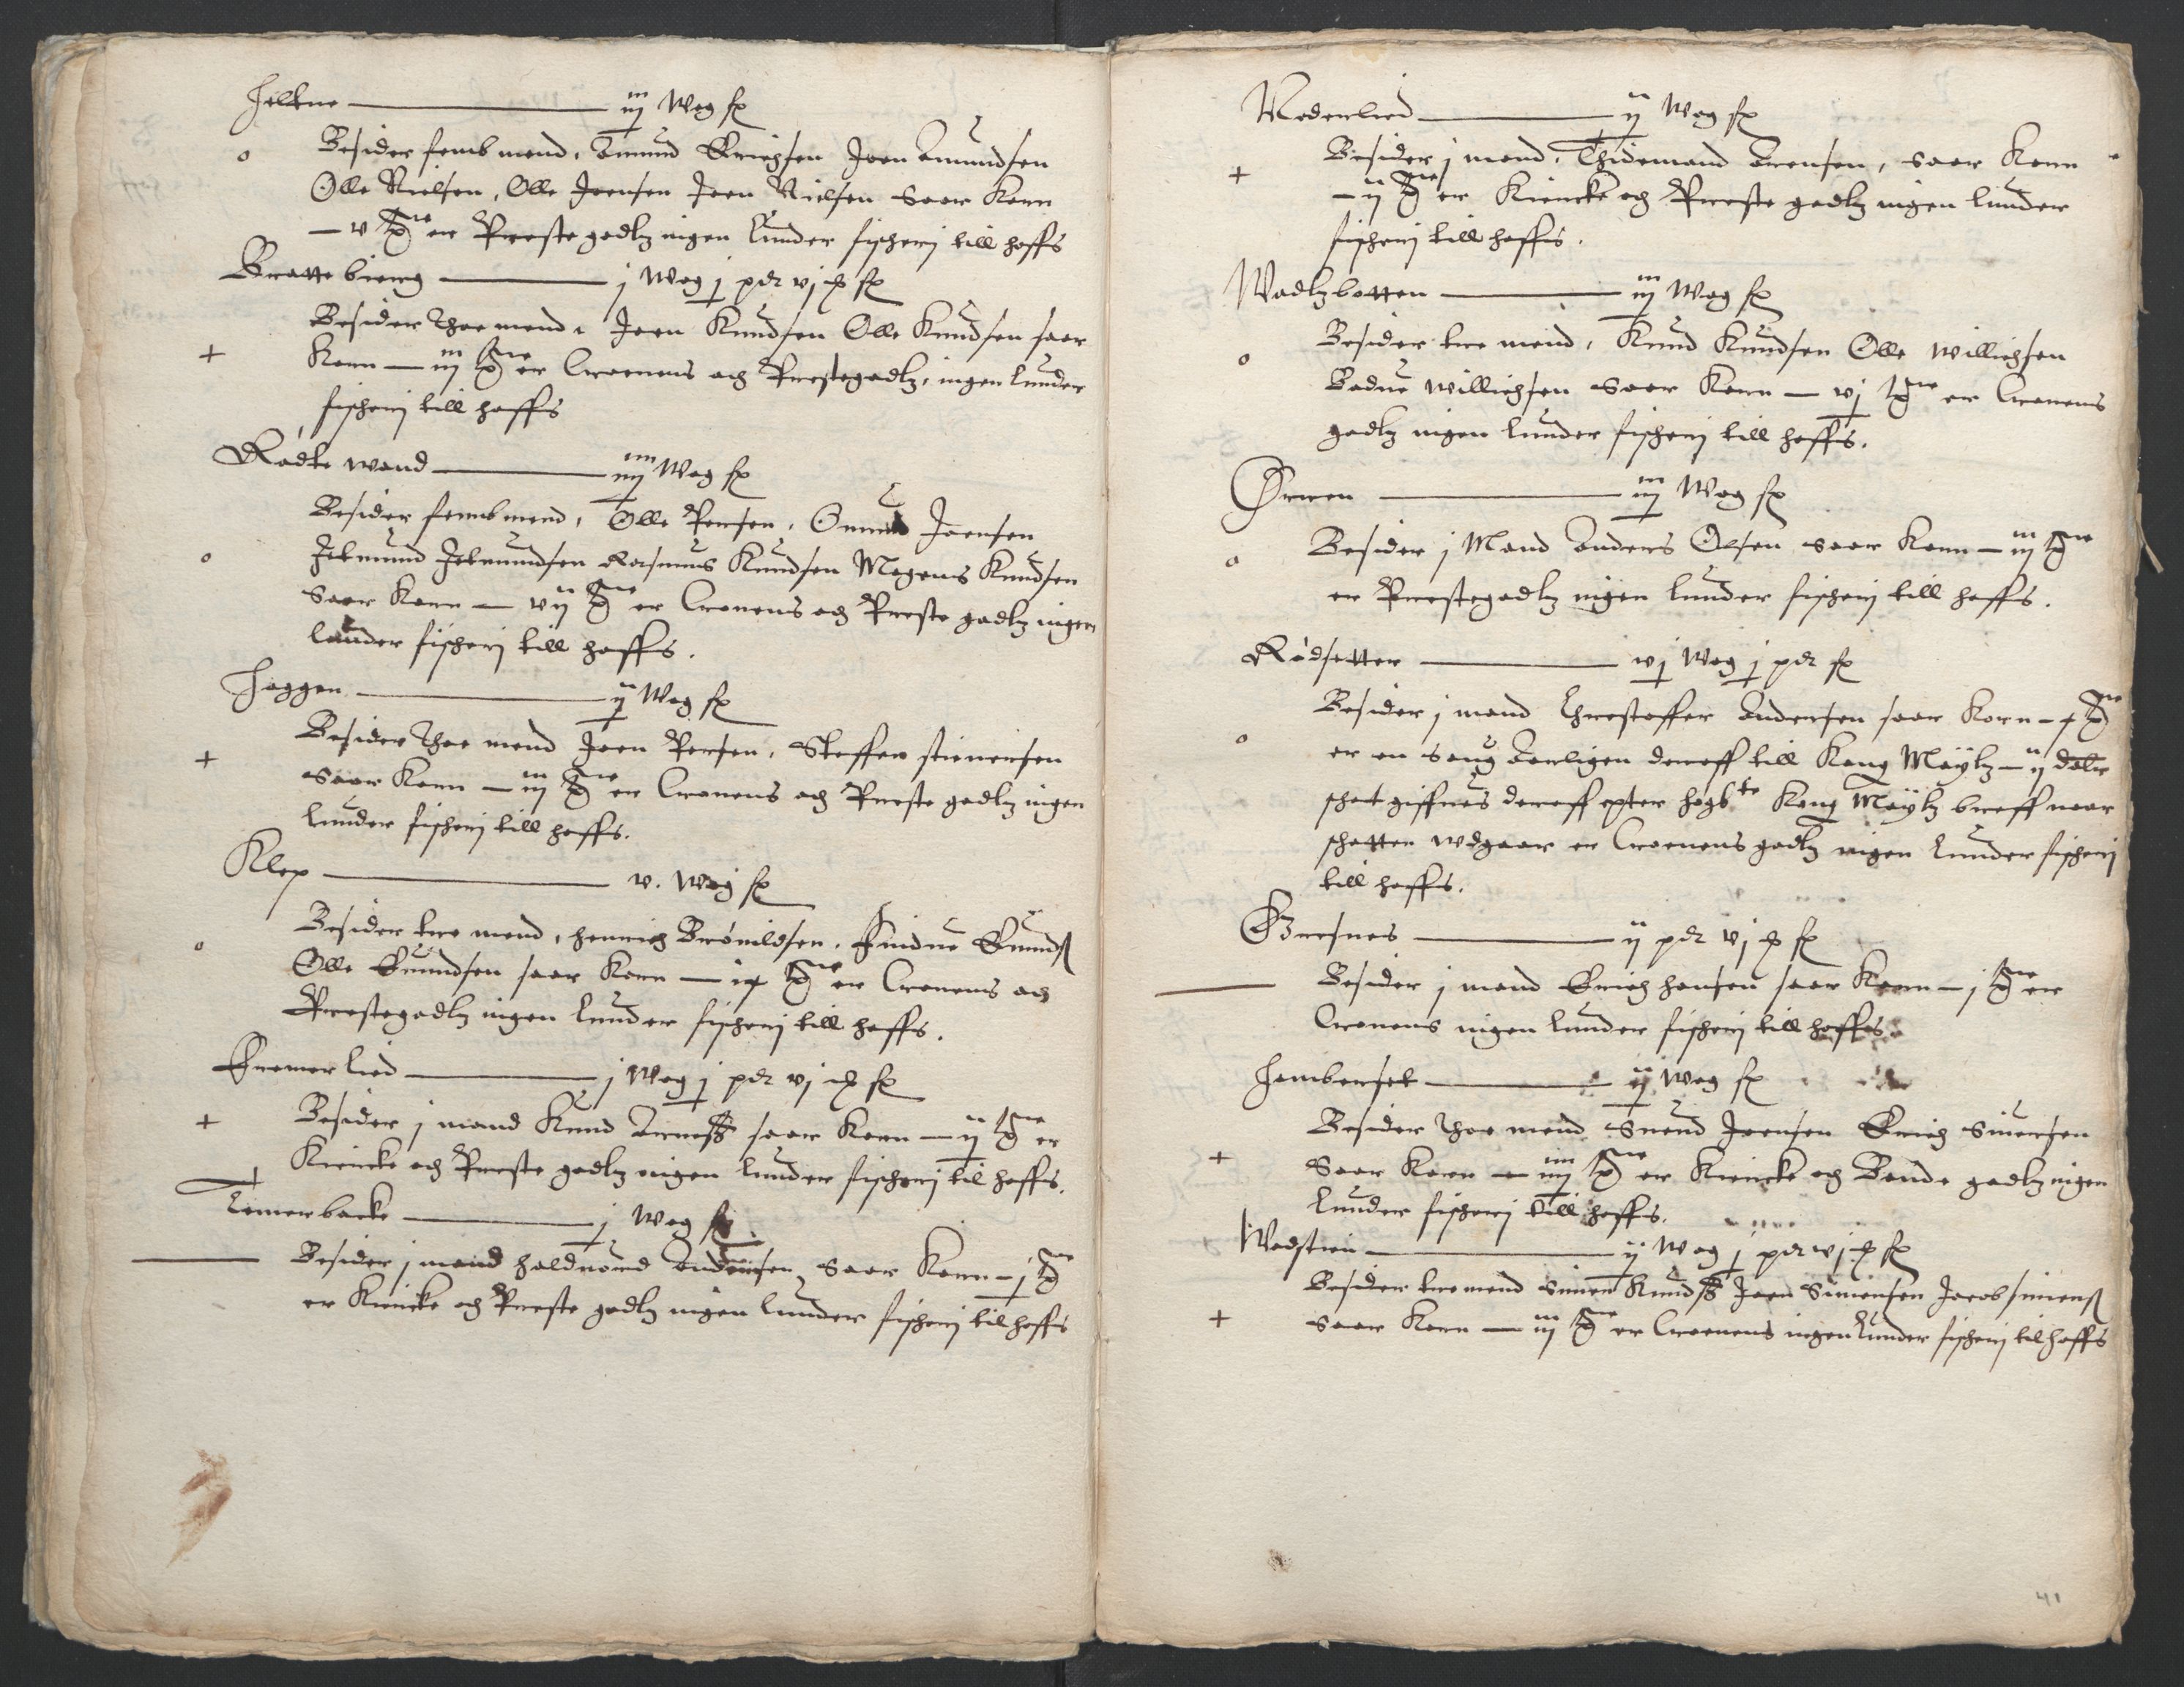 Jeltne — iij Wog f
o Besider femb mend, Amund Erichsen Joen Amundsen
Olle Nielsen, Olle Joensen Joen Nielsen Saar Korn
— v tne er Prestegodtz ingen lunder fischerj till hoffs
Brattebierg — j Wog j pd vj f
Besider thoe mend, Joen Knudsen Olle Knudsen saar
+ Korn — iij tne er Croenens och Prestegodtz, ingen lunder
fischerj till hoffs
Rødte wand — iiij Wog f
Besider fembmend, Olle Persen, Omund Joensen
o Jetmund Jetmundsen Rasmus Knudsen Mogens Knudsen
Saar Korn — vij tne er Cronens och Preste godtz ingen
lunder fischerj till hoffs.
Hoggen — ij Wog f
Besider thoe mend Joen Persen, Steffen stienersen
+ Saar Korn — iij tne er Cronens och Preste godtz ingen
lunder fischerj till hoffs.
Klep — v. Wog f
o Besider tre mend, henrich Brønildsen, Findue Emunds
Olle Emundsen saar Korn — ix tne er Cronens och
Prestegodtz ingen lunder fischerj till hoffs.
Fremerlied — j Wog j pd vj f
+ Besider j mand Knud Arness saar Korn — ij tne er
Kiercke och Preste godtz ingen lunder fischerj til hoffs.
+
Tømerbacke — j Wog f
— Besider j mand haldvord Andersen, Saar Korn — j tne
er Kiercke och Preste godtz ingen lunder fischerj til hoffs
Nederlied — ij Wog f
+ Besider j mand, Thidemand Arensen, saar Korn
— ij tne er Kiercke och Preste godtz ingen lunder
fischerj till hoffs.
Wadtzbotten — iij Wog f
o Besider tre mend, Knud Knudsen Olle Willichsen
Badue Willichsen Saar Korn — vj tne er Cronens
godtz ingen lunder fischerj till hoffs.
Ørnen — iij Wog f
o Besider j Mand Anders Olsen saar Korn — iij tne
er Prestegodtz ingen lunder fischerj till hoffs.
Rødsetter — vj Wog j pd f
Besider j mand Christoffer Andersen saar Korn — x tne
o er en Saug Aarligen deraff till Kong Maytz — ij daler
schat giffues deraff epter høgbte Kong Maytz breff naar
schatten wdgaar er Croenens godtz ingen lunder fischerj
till hoffs.
Gresnes — ij pd vj f
— Besider j mand Erich hansen saar Korn — j tne er
Cronens ingen lunder fischerj till hoffs.
Hamberset — ij Wog f
Besider thoe mend Suend Joensen Erich Siuersen
+ Saar Korn — iiij tne er Kiercke och Bønde godtz ingen
lunder fischerj till hoffs.
Wadstein — ij Wog j pd vj f
Besider tre mend Simen Knuds Joen Simensen Jacob simens
+ Saar Korn — iij tne er Croenens ingen lunder fischerj til hoffs
41